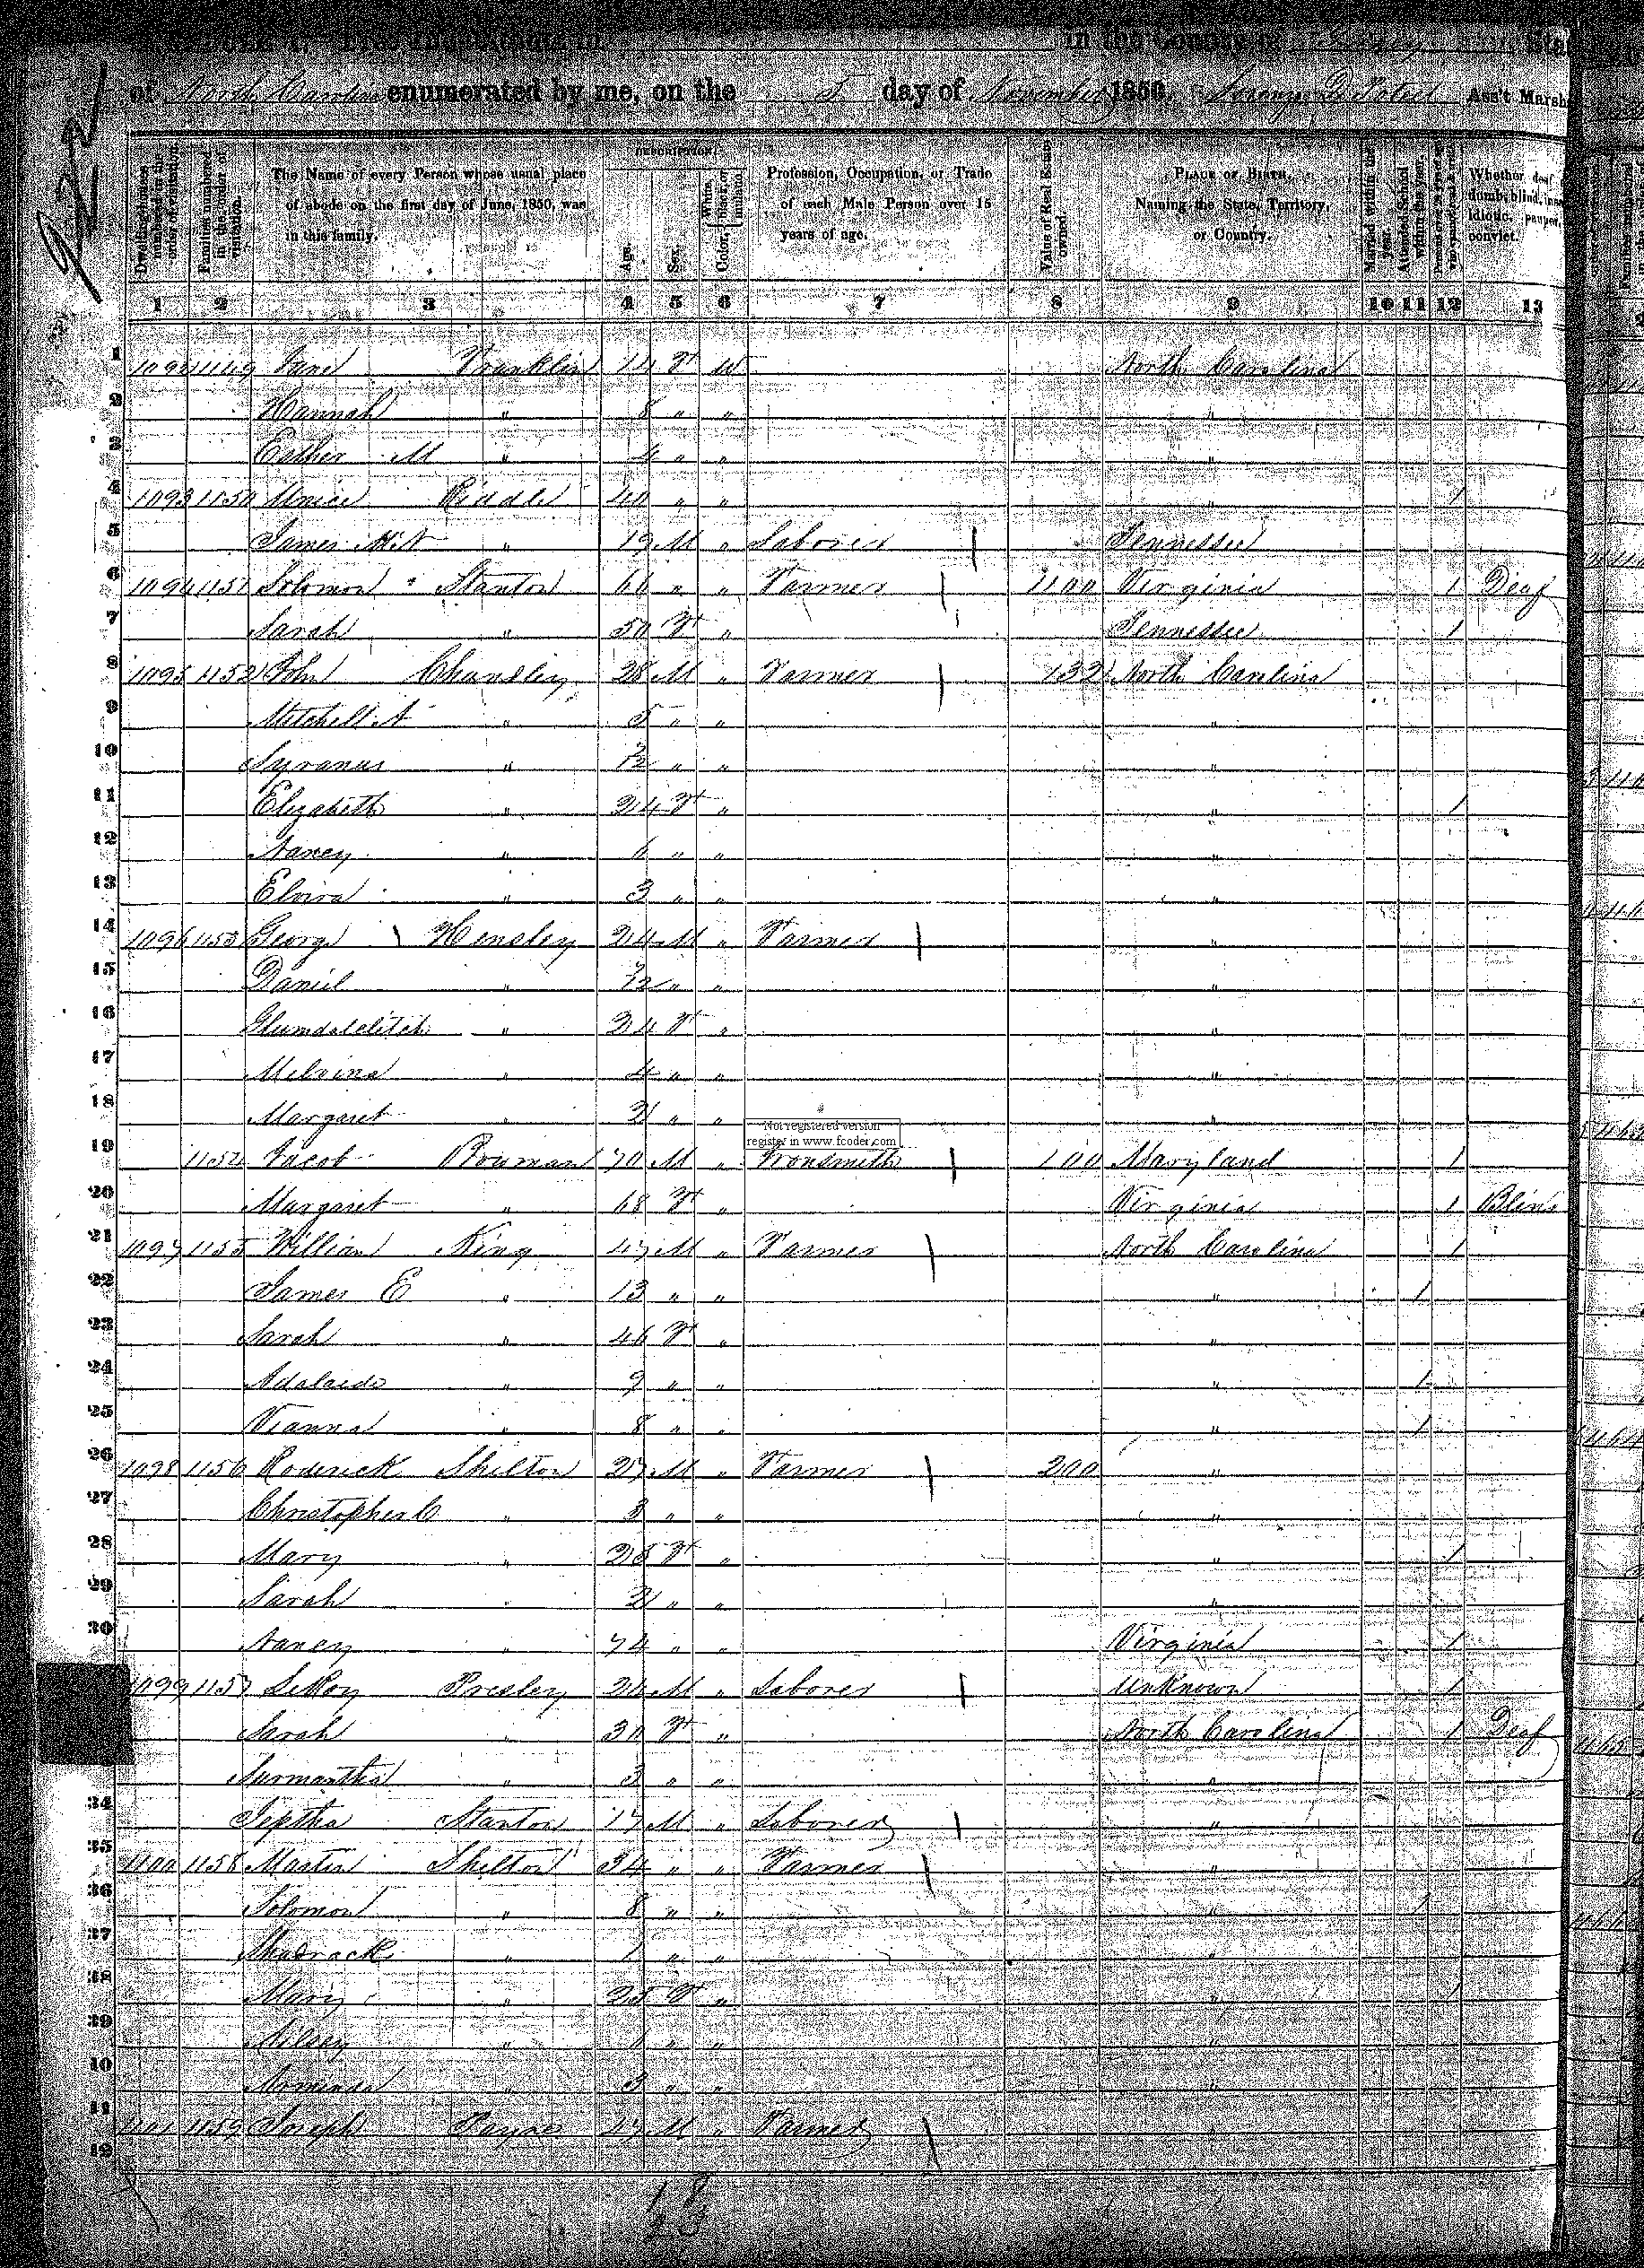 in the County of Yancey State
of North Carolina enumerated by me, on the 5 day of November 1850. Ass't Marsh
Dwelling-houses numbered in the order of visitation.
Families numbered in the order of visitation.
The Name of every Person whose usual place of abode on the first day of June, 1850, was in this family.
DESCRIPTION.
Age.
Sex.
Color, White, black, or mulatto.
Profession, Occupation, or Trade of each Male Person over 15 years of age.
Value of Real Estate owned.
PLACE OF BIRTH. Naming the State, Territory, or Country.
Married within the year.
Attended School within the year.
Persons over 20 y'rs of age who cannot read & write.
Whether deaf dumb, blind, insane idiotic, pauper, convict.
1 2 3 4 5 6 7 8 9 10 11 12 13
1 1092 1149 Jane Franklin 14 F W North Carolina
2 Hannah " 8 " " "
3 Esther M " 4 " " "
4 1093 1150 Unice Riddle 40 " " " 1
5 James " 19 M " Laborer Tennessee
6 1094 1151 Solomon Stanton 66 " " Farmer 1100 Virginia 1 Deaf
7 Sarah " 50 F " Tennessee 1
8 1095 1152 John Chandley 28 M " Farmer 132 North Carolina
9 Mitchell A " 5 " " "
10 Syranus " " " "
11 Elizabeth " 24 F " " 1
12 Nancy " 6 " " "
13 Elvira " 3 " " "
14 1096 1153 George Hensley 24 M " Farmer "
15 Daniel " " " "
16 Glumdalclitch " 24 F " "
17 Melvina " 4 " " "
18 Margaret " 2 " " "
Not registered version
register in www.fcoder.com
19 1154 Jacob Bowman 70 M " Ironsmith 100 Maryland 1
20 Margaret " 68 F " Virginia 1 Blind
21 1097 1155 William King 47 M " Farmer North Carolina 1
22 James E " 13 " " " 1
23 Sarah " 46 F " "
24 Adalaide " 9 " " " 1
25 Vianna " 8 " " " 1
26 1098 1156 Roderick Shelton 27 M " Farmer 200 "
27 Christopher C " 3 " " "
28 Mary " 25 F " " 1
29 Sarah " 2 " " "
30 Nancy " 74 " " Virginia 1
1099 1157 LeRoy Presley 24 M " Laborer Unknown 1
Sarah " 30 F " North Carolina 1 Deaf
Surmantha " 3 " " "
34 Jeptha Stanton 17 M " Laborer "
35 1100 1158 Martin Shelton 34 " " Farmer "
36 Solomon " 8 " " " 1
37 Shadrack " 1 " " "
38 Mary " 25 F " " 1
39 " 6 " " "
40 " 3 " " "
41 1101 1159 Joseph Payne 47 M " Farmer "
42